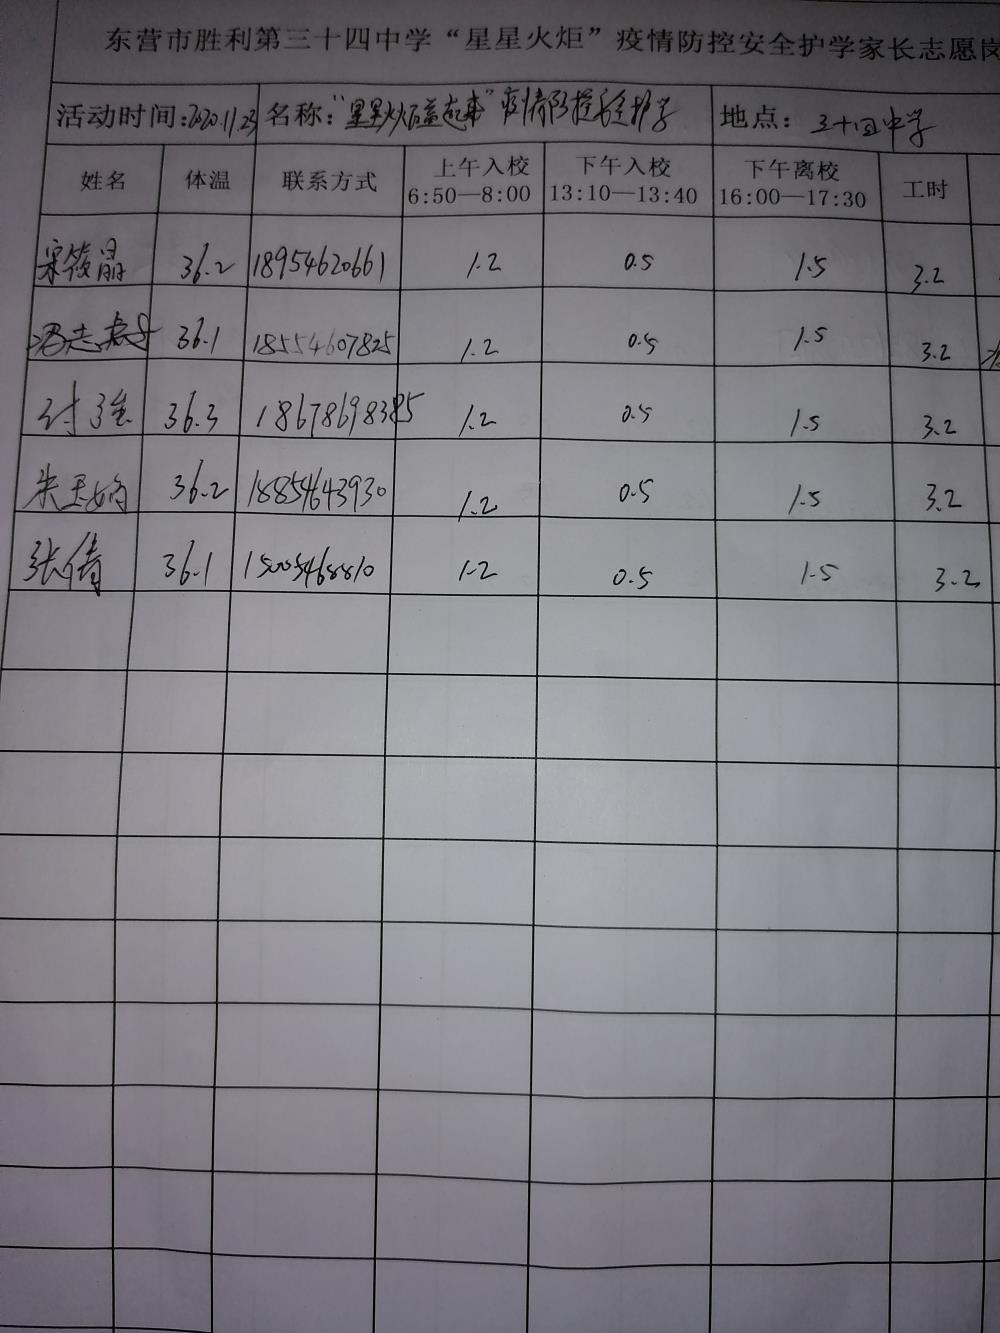 东营市胜利第三十四中学“星星火炬”疫情防控安全护学家长志愿岗
活动时间:2020.11.23 名称:“星星火炬益起来”疫情防控安全护学 地点: 三十四中学
姓名 体温 联系方式 上午入校 6:50—8:00 下午入校 13:10—13:40 下午离校 16:00—17:30 工时
宋筱晶 36.2 18954620661 1.2 0.5 1.5 3.2
36.1 18554607825 1.2 0.5 1.5 3.2
36.3 18678698385 1.2 0.5 1.5 3.2
朱玉娟 36.2 18854643930 1.2 0.5 1.5 3.2
张倩 36.1 1.2 0.5 1.5 3.2